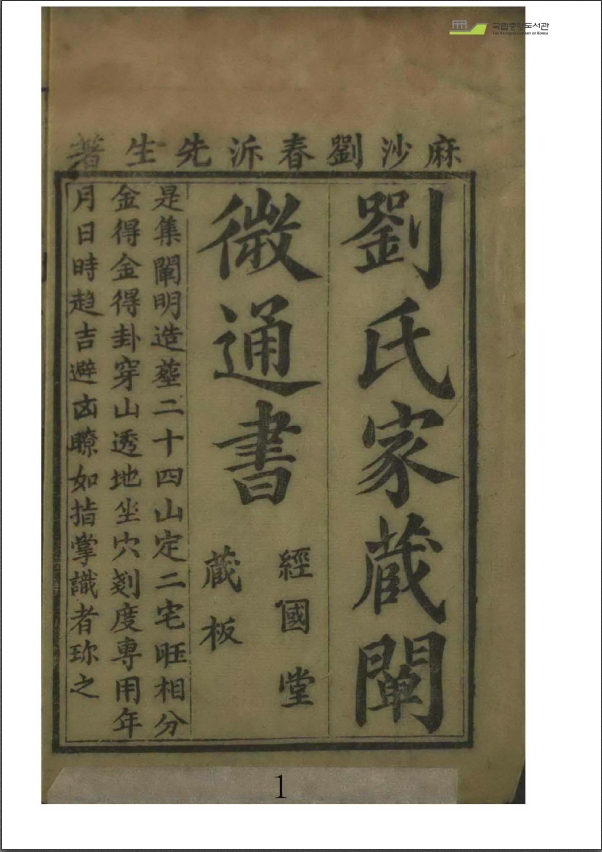 국립중앙도서관
麻沙劉春沂先生著
劉氏家蔵闡
微通書
經國堂
蔵板
是集闡明造塟二十四山定二宅旺相分
金得金得卦穿山透地坐穴刻度專用年
月日時趋吉避凶瞭如指掌識者珎之
1